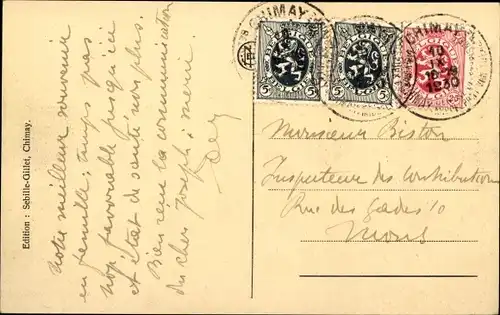 Edition : Sebille-Gillet, Chimay.
Notre meilleur souvenir
en famille; temps pas
trop favorable jusqu'ici
et état de santé non plus.
Bien reçu la communication
du cher Joseph; merci
CHIMAY
CHIMAY
10
IX
1930
5 5
5 5
BELGIQUE
Monsieur Biston
Inspecteur des Contributions
Rue des Gades 10
Mons